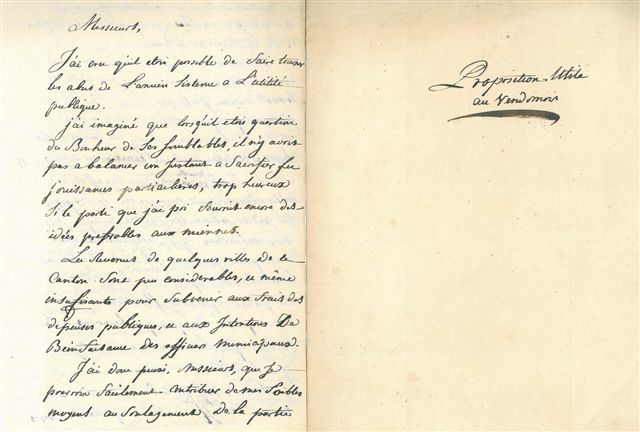 Messieurs,
J'ai cru qu'il etoit possible de faire tourner
les abus de L'ancien Sisteme a L'utilité
publique.
j'ai imaginé que lorsqu'il etoit question
du Bonheur de Ses Semblables, il n'y avoit
pas a balancer un Instant a Sacrifier les
Jouissances particulieres, trop heureux
Si le parti que j'ai pri fournit encore des
idées preferables aux miennes.
Les Revenus de quelques villes de ce
Canton Sont peu considerables, et même
insufisants pour Subvenir aux frais des
depenses publiques, et aux Intentions De
Bienfaisance des officiers municipaux.
J'ai donc pensé, Messieurs, que Je
pourrois facilement contribuer de mes foibles
moyens au Soulagement De la partie
Proposition Utile
au Vendomois